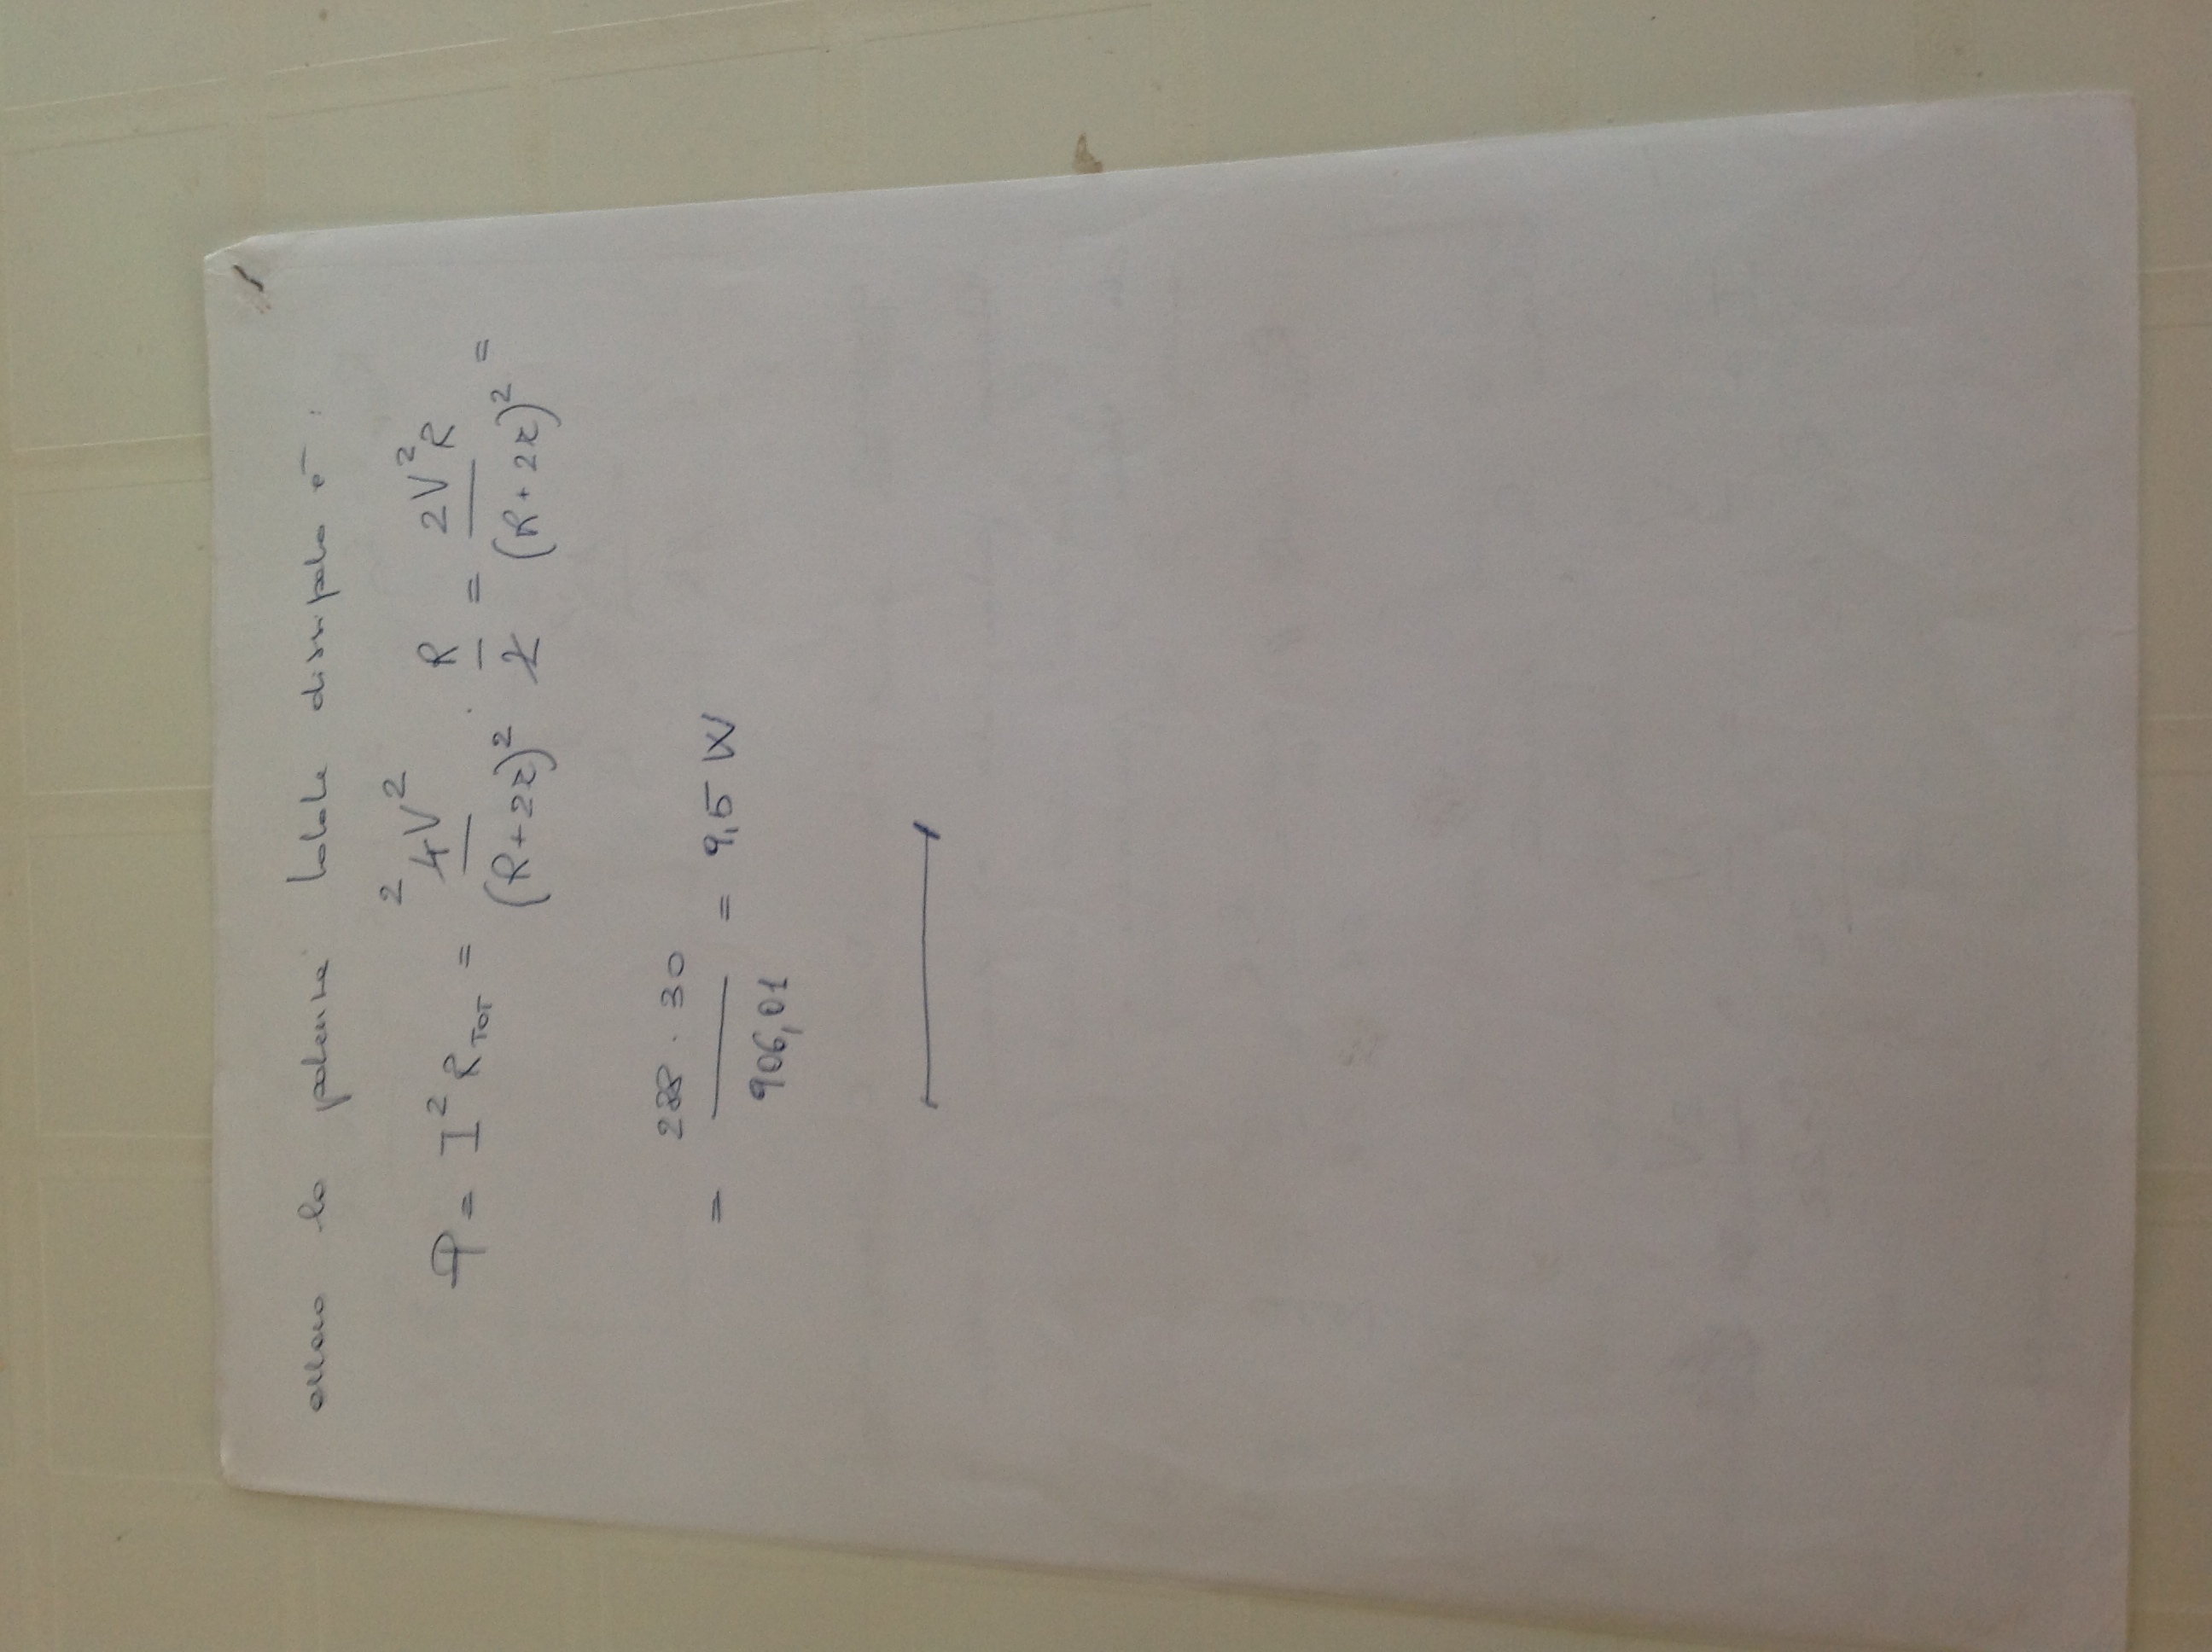 allora la potenza totale dissipata è:
P = I² R_TOT = ²4V² / (R+2r)² · R / 2 = 2V²R / (R+2r)² =
= 288 · 30 / 906,01 = 9,5 W